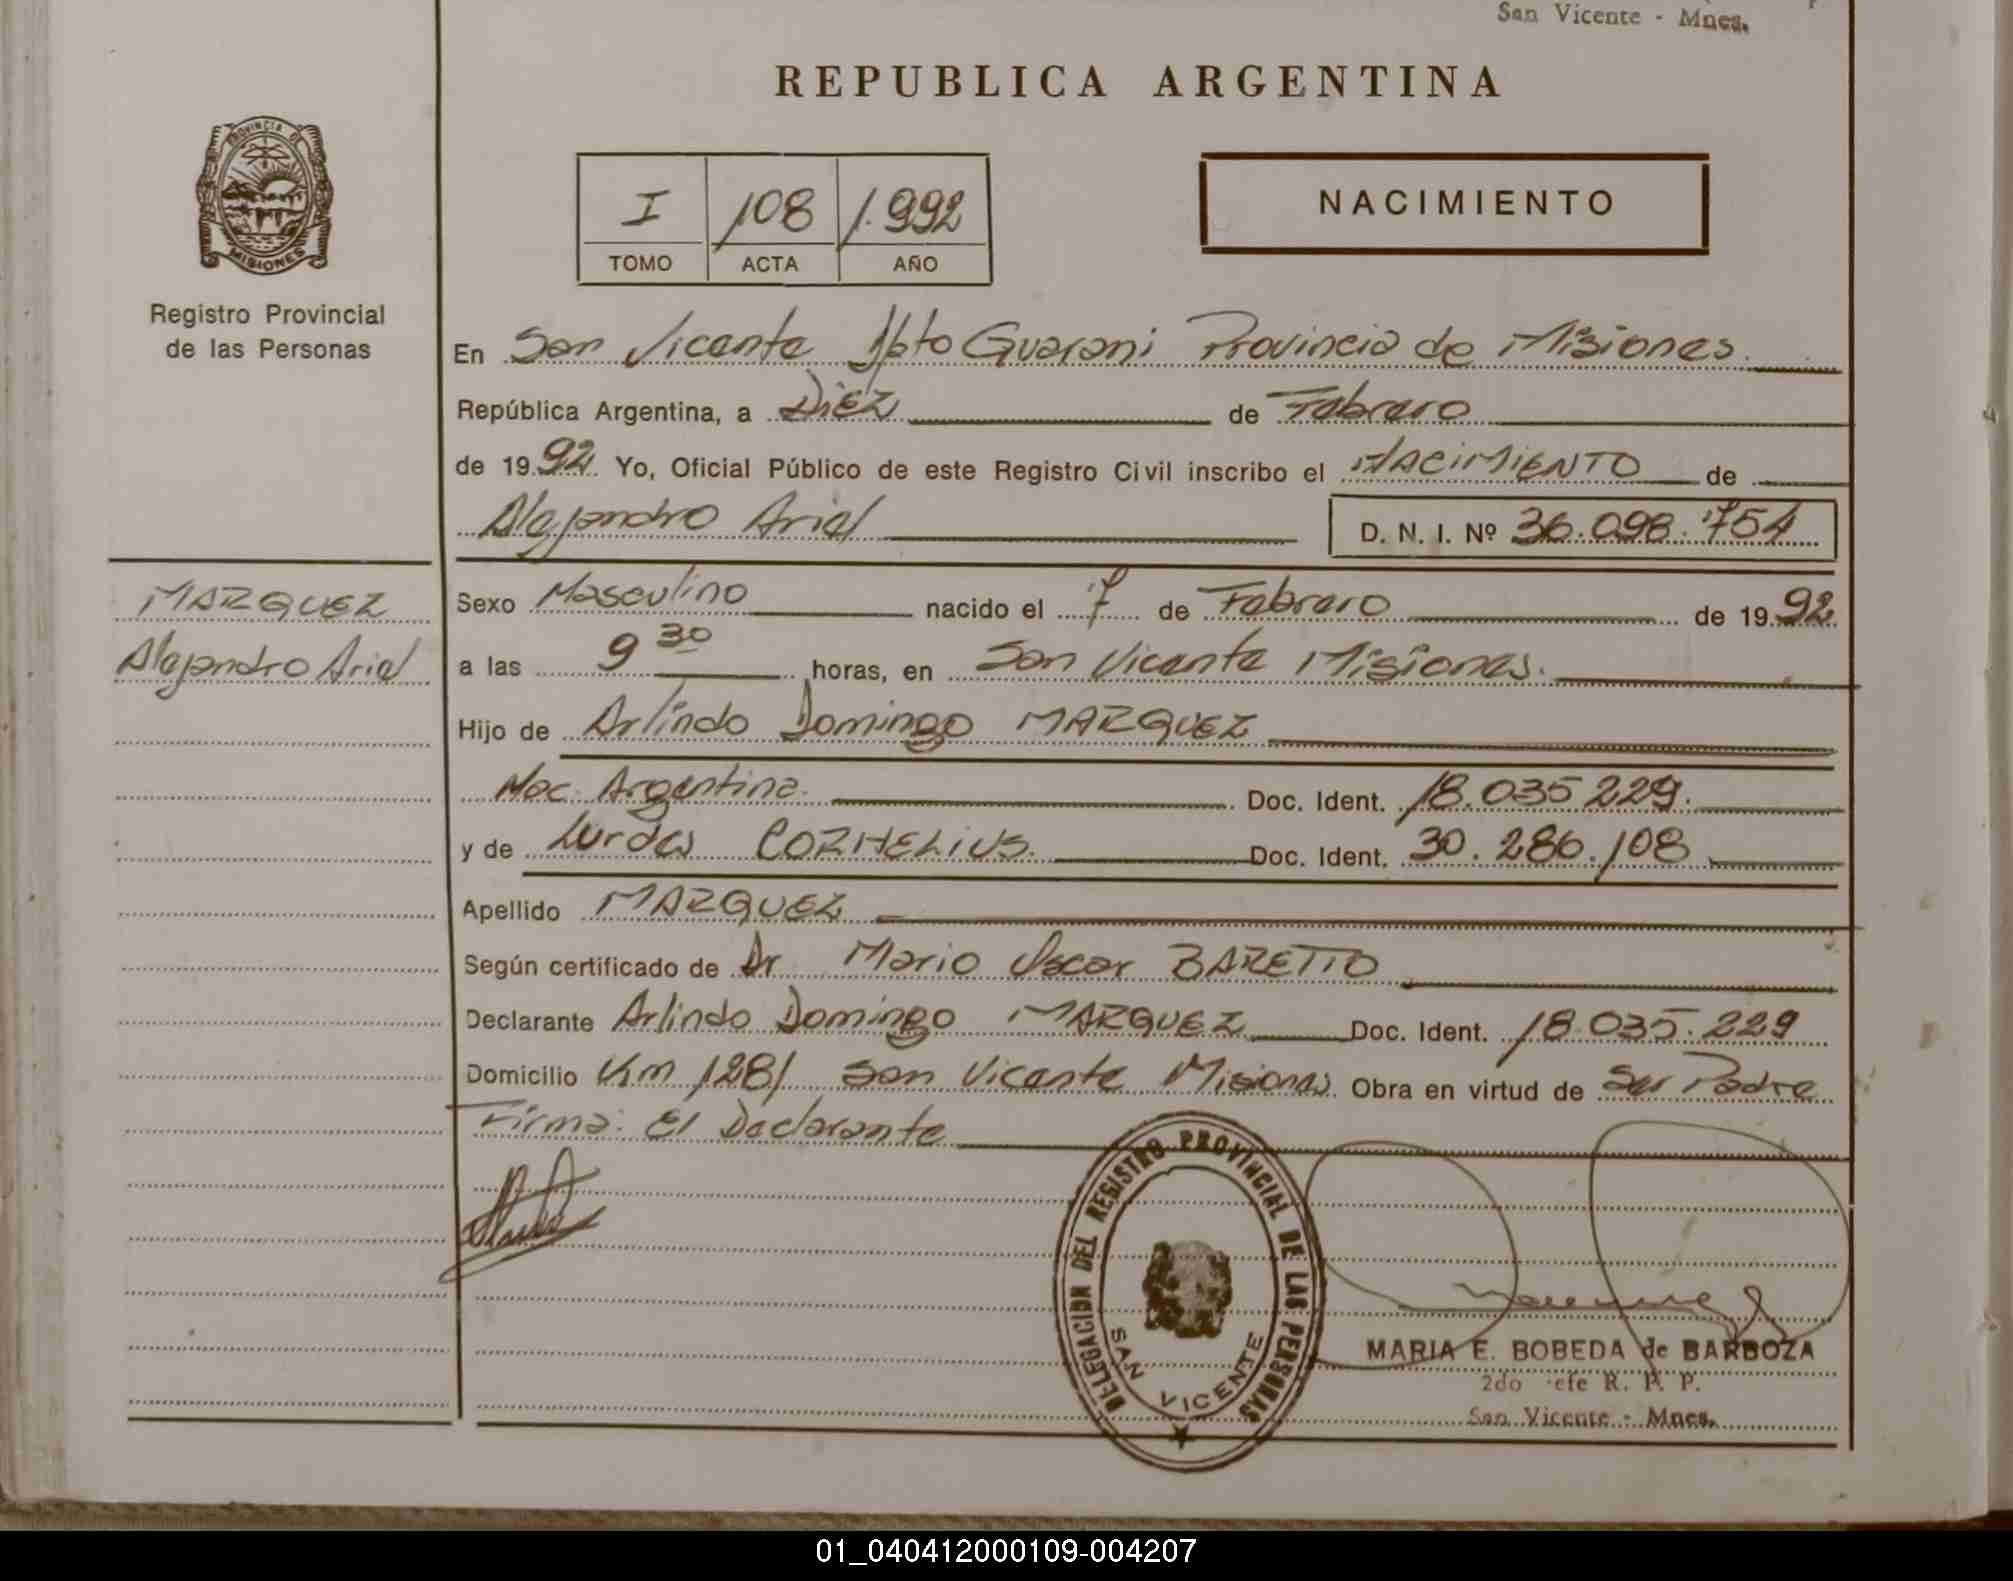 San Vicente - Mnes.
REPUBLICA ARGENTINA
PROVINCIA DE
MISIONES
Registro Provincial
de las Personas
I 108 1.992
TOMO ACTA AÑO
NACIMIENTO
En San Vicente Dpto Guarani Provincia de Misiones.
República Argentina, a Diez de Febrero
de 1992. Yo, Oficial Público de este Registro Civil inscribo el NACIMIENTO de
Alejandro Ariel D. N. I. Nº 36.098.754
MARQUEZ
Alejandro Ariel
Sexo Masculino nacido el 7 de Febrero de 1992
a las 9 30 horas, en San Vicente Misiones.
Hijo de Arlindo Domingo MARQUEZ
Nac. Argentina. Doc. Ident. 18.035 229.
y de Lurdes CORNELIUS. Doc. Ident. 30.286.108
Apellido MARQUEZ
Según certificado de Dr Mario Oscar BARETTO
Declarante Arlindo Domingo MARQUEZ Doc. Ident. 18.035.229
Domicilio Km 1281 San Vicente Misiones Obra en virtud de Ser Padre
Firma: El Declarante
DELEGACION DEL REGISTRO PROVINCIAL DE LAS PERSONAS
SAN VICENTE
MARIA E. BOBEDA de BARBOZA
2do efe R. P. P.
San Vicente - Mnes.
01_040412000109-004207